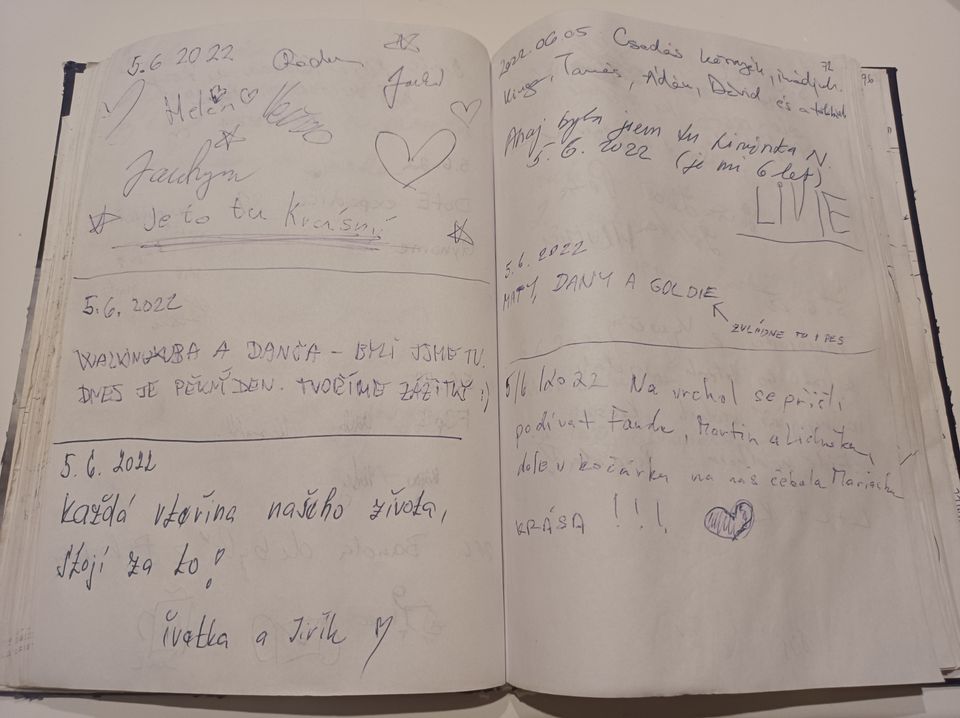 5.6 2022
Radu
Helen
Jáchym
Je to tu krásný
5.6.2022
WALKINKUBA A DANČA – BYLI JSME TU.
DNES JE PĚKNÝ DEN. TVOŘÍME ZÁŽITKY :)
5.6. 2022
Každá vteřina našeho života,
stojí za to!
Ivetka a Jiřík
2022.06.05 Csodás környék, imádjuk.
Kinga, Tamás, Ádám, Dávid és a többiek
Ahoj byla jsem tu N.
5.6.2022 (je mi 6 let)
LIVIE
5.6.2022
MATY, DANY A GOLDIE
ZVLÁDNE TO I PES
5/6/2022 Na vrchol se přišli
podívat Fanda, Martin a Lidunka,
dole v kočárku na nás čekala Mariánka
KRÁSA !!!